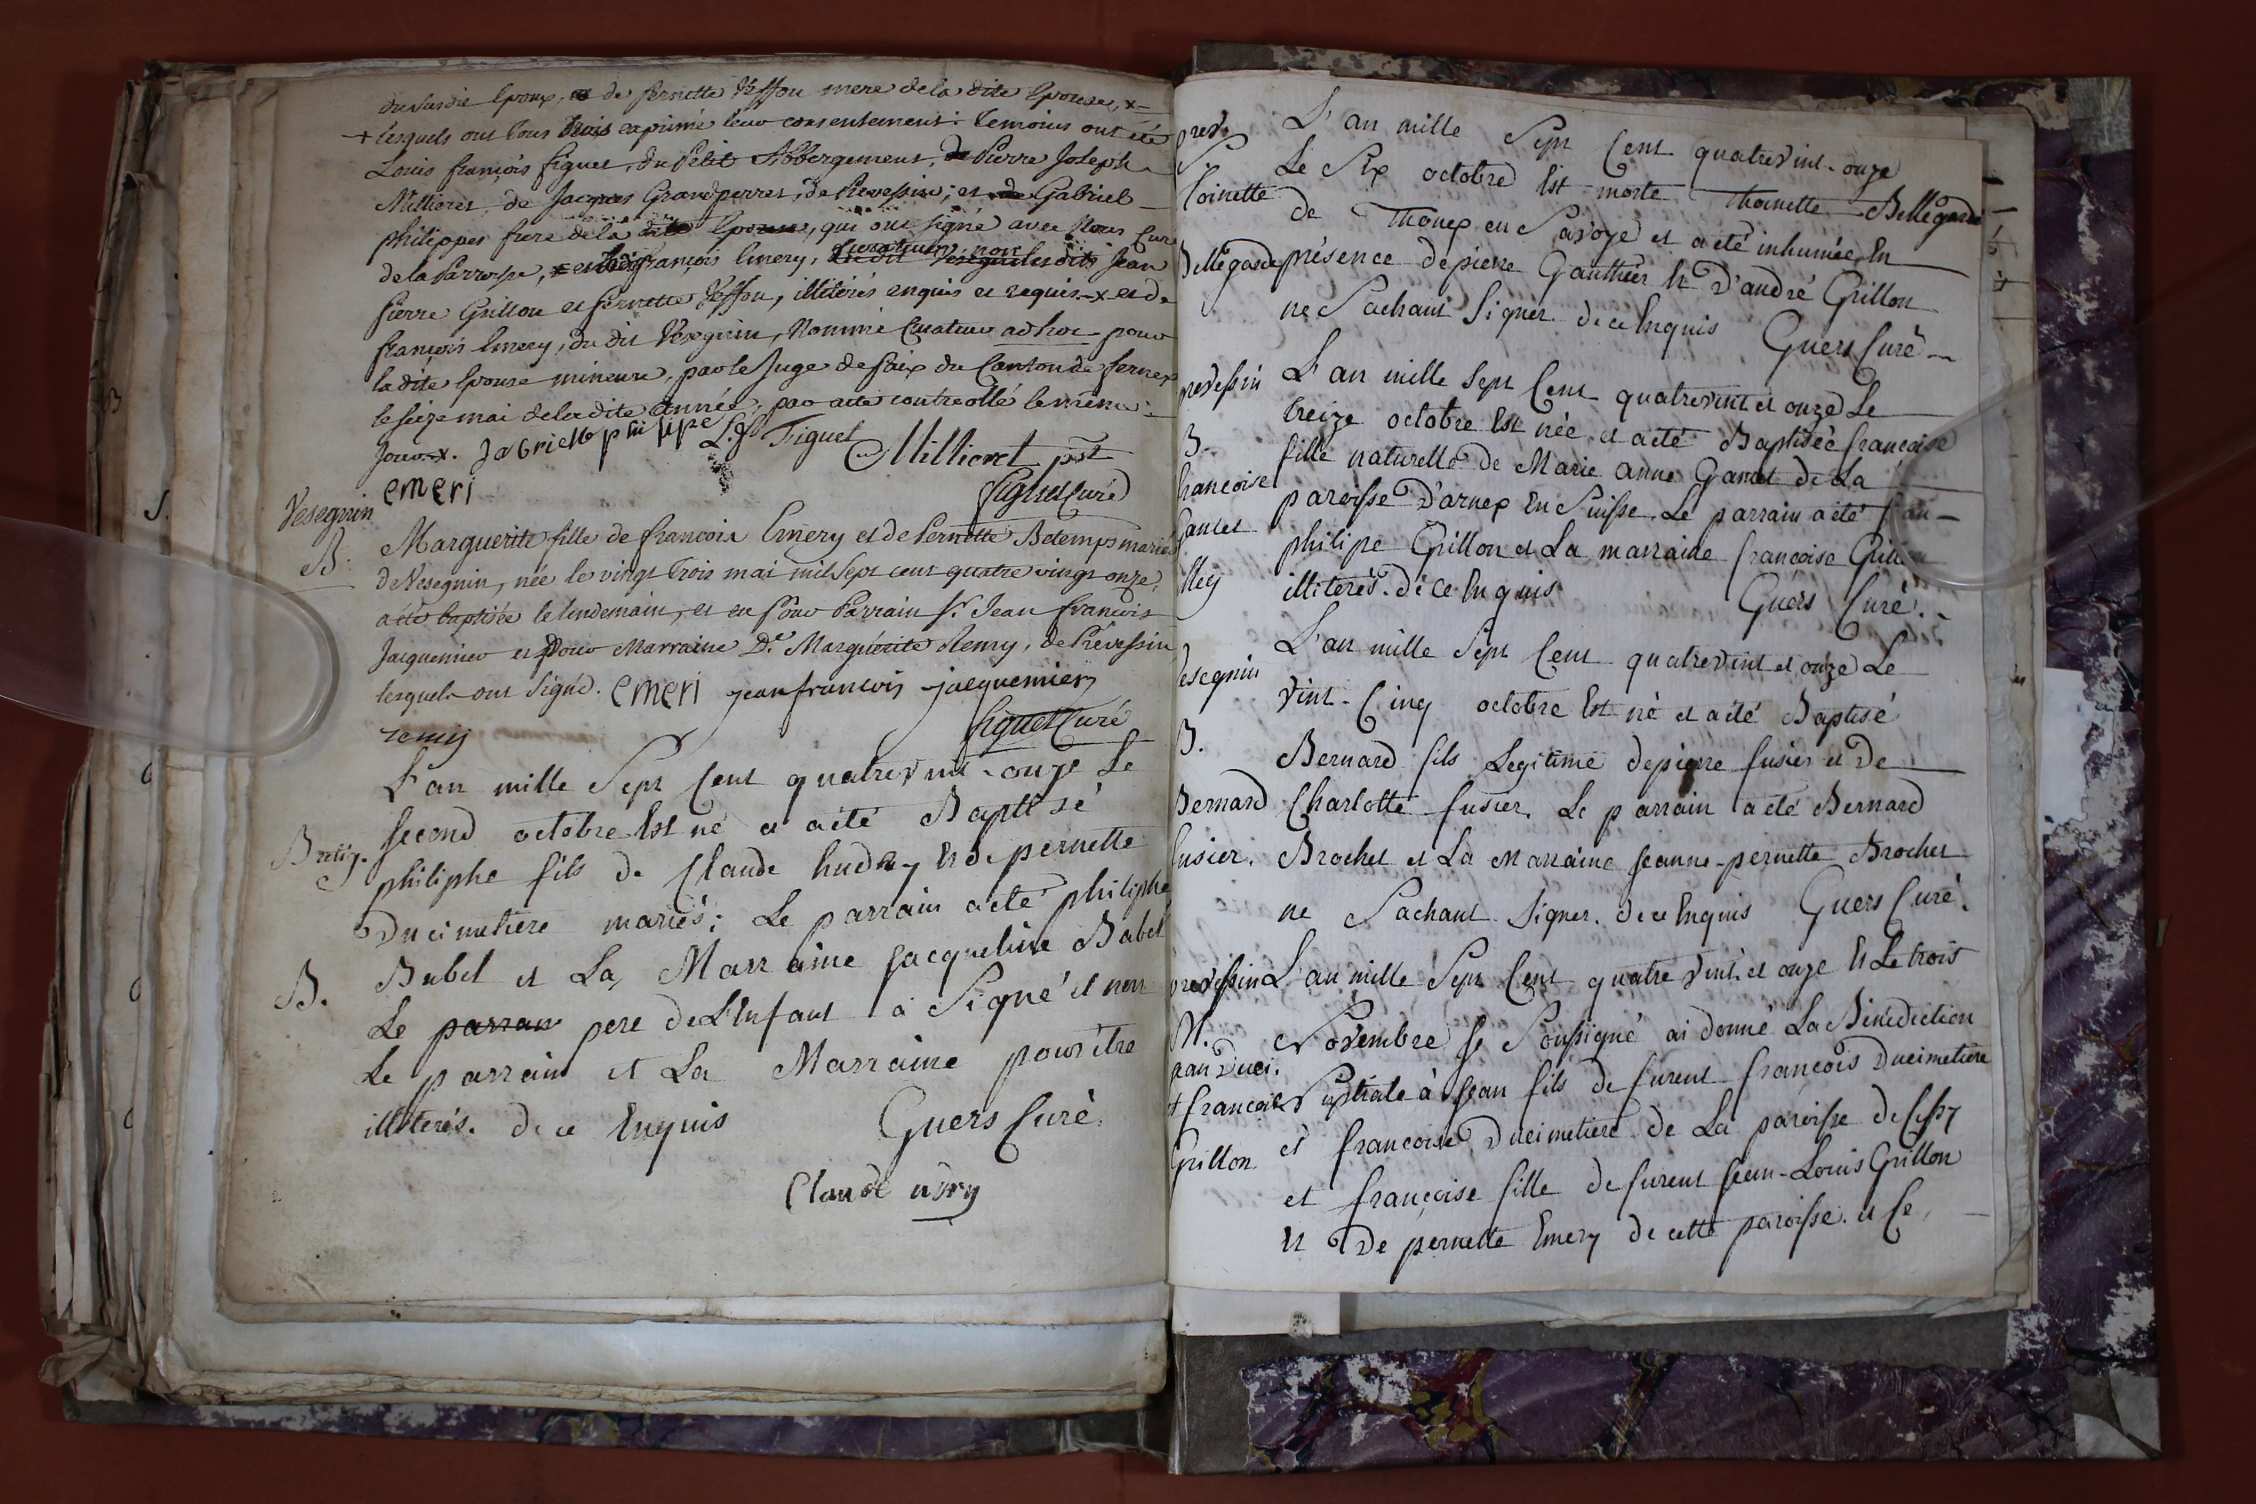 du susdit Epoux, de Pernette Vessou mere de la dite Epouse, x
+ lesquels ont tous trois exprimé leur consentement: temoins ont été
Louis françois figuet, du Petit Abbergement, de Pierre Joseph
Millieret, de Jacques Grandperret, de Prevessin; et de Gabriel
philippes frere de la dite Epouse, qui ont signé avec Nous Curé
de la Parroisse, françois Emery, curateur, non lesdits Jean
Pierre Grillon et Pernette Vessou, illiterés enquis et requis. x et de
françois Emery, du dit Vesegnin, Nommé Curateur ad hoc pour
la dite Epouse mineure, par le Juge de Paix du Canton de fernex
le seize mai de la dite année, par acte controllé le même
jour. x. Gabrielle philipe L. f. Figuet Millieret pst
emeri figuet Curé
Vesegnin
B. Marguerite fille de françois Emery et de Pernette Betemps mariés
de Vesegnin, née le vingt trois mai mil sept cent quatre vingt onze,
a été baptisée le lendemain, et eu pour Parrain Sr. Jean françois
Jacquemier et pour Marraine De. Marguerite Remy, de Prévessin
lesquels ont signé. emeri jean francois jacquemier
remy figuet Curé
L'an mille Sept Cent quatrevint-onze Le
second octobre Est né et a été Baptisé
Bretig. philiphe fils de Claude hudry Et de pernette
Ducimetiere mariés; Le parrain a été philiphe
B. Babel et La Marraine Jacqueline Babel
Le parrain pere de L'Enfant a Signé et non
Le parrain et La Marraine pour être
illiterés. de ce Enquis Guers Curé.
Claude udry
prev. L'an mille Sept Cent quatrevint-onze
S. Le Six octobre Est morte Thoinette Bellegarde
Toinette de Thonex en Savoye et a été inhumée, En
Bellegarde présence de pierre Gauthier Et D'andré Grillon
ne Sachant Signer de ce Enquis Guers Curé
prevessin L'an mille Sept Cent quatrevint et onze Le
treize octobre Est née et a été Baptisée francoise
B. fille naturelle de Marie anne Gantet de La
francoise paroisse D'arnex En Suisse. Le parrain a été
Gantet philipe Grillon et La marraine francoise
illiterés. de ce Enquis Guers Curé.
L'an mille Sept Cent quatrevint et onze Le
Vesegnin vint-Cinq octobre Est né et a été Baptisé
B. Bernard fils Legitime de pierre fusier et De
Bernard Charlotte fusier. Le parrain a été Bernard
fusier. Brochet et La Marraine Jeanne-pernette Brochet
ne Sachant Signer. de ce Enquis Guers Curé.
prevessin L'an mille Sept Cent quatre vint et onze Et Le trois
M. Novembre Je Soussigné ai donné La Bénédiction
jean Duci. Nuptiale à Jean fils de furent françois Ducimetiere
et françoise et francoise Ducimetiere de La paroisse de Cessy
Grillon et françoise fille de furent Jean-Louis Grillon
Et De pernette Emery de cette paroisse. et Ce